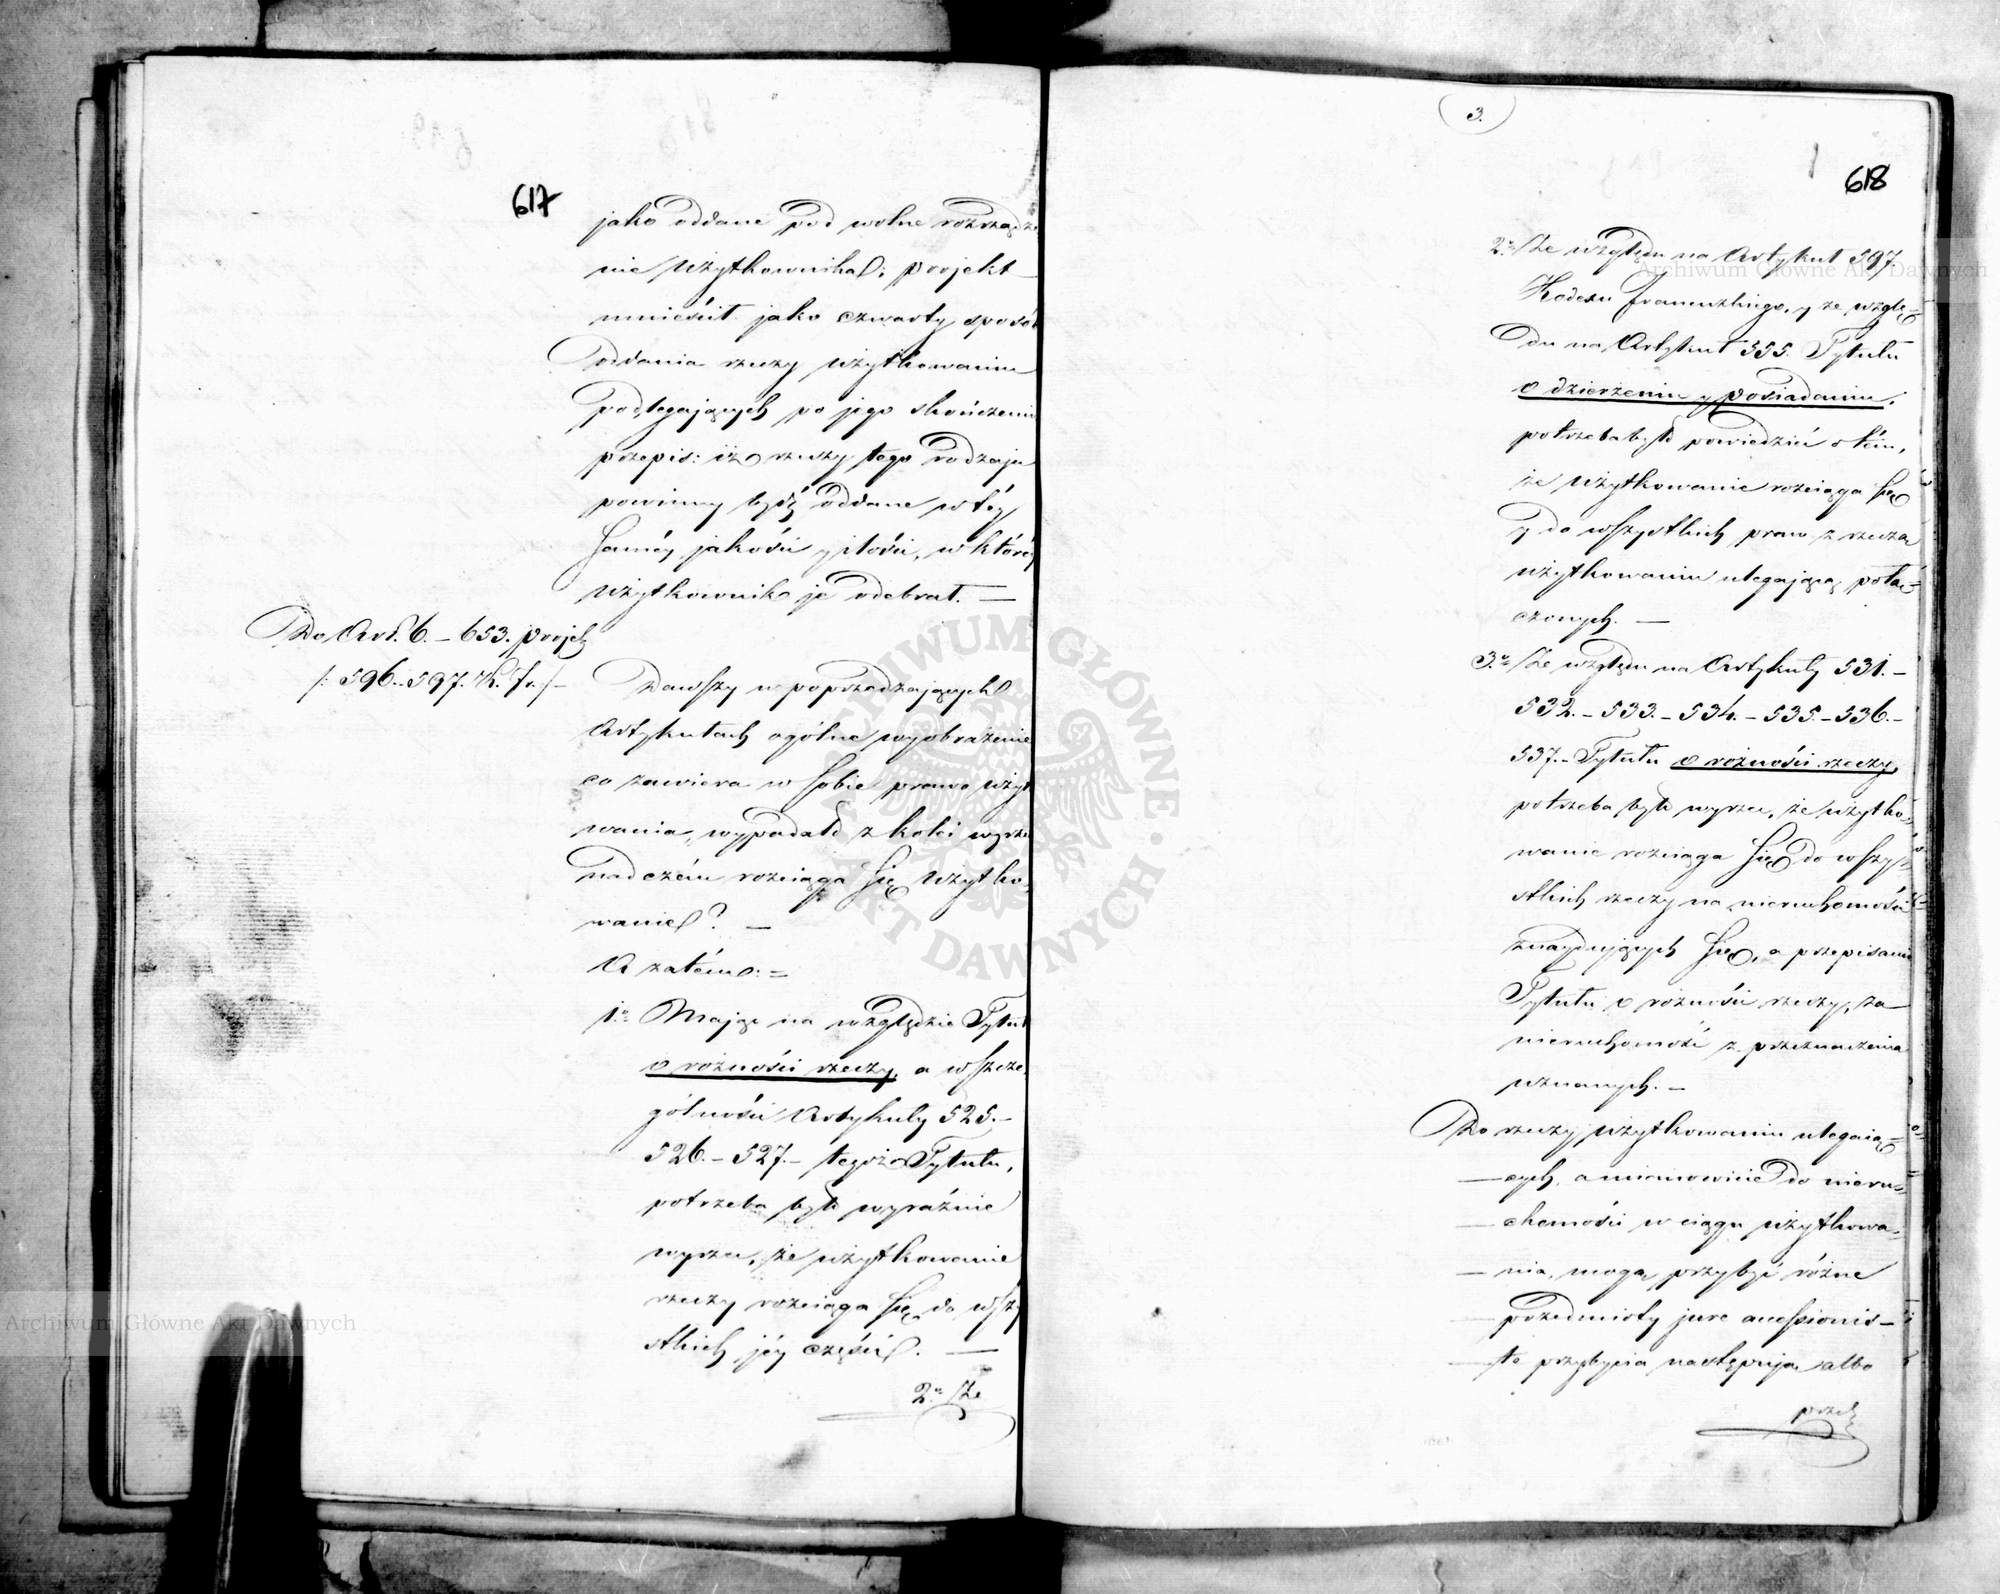 617
jako oddane pod wolne rozrządze
nie użytkownika; projekt
umieścił jako czwarty sposób
oddania rzeczy użytkowaniu
podlegających po jego skończeniu
przepis: iż rzeczy tego rodzaju
powinny bydź oddane w téy
saméy jakości y ilości, w któréy
użytkownik je odebrał. —
Do Art. 6. – 653. projek
/: 596.–597. K. Fr. :/
Dawszy w poprzedzających
Artykułach ogólne wyobrażenie
co zawiera w sobie prawo użyt
wania, wypadało z kolei wyrze
nad czém rozciąga się użytko-
wanie? —
A zatém: =
1.o Mając na względzie Tytuł
o różności rzeczy, a w szcze-
gólności Artykuły 525.–
526.–527.– tegoż Tytułu,
potrzeba było wyraźnie
wyrzec, że użytkowanie
rzeczy rozciąga się do wszy
stkich jéy części. —
2.o Ze
3.
618
2.o Ze względu na Artykuł 597.
Kodexu francuzkiego, y ze wzglę-
du na Artykuł 555. Tytułu
o dzierżeniu y posiadaniu,
potrzeba było powiedzieć o tém,
że użytkowanie rozciąga się
y do wszystkich praw z rzeczą
użytkowaniu ulegającą połą-
czonych. —
3.o Ze względu na Artykuły 531.–
532.–533.–534.–535.–536.–
537.– Tytułu o różności rzeczy,
potrzeba było wyrzec, że użytko-
wanie rozciąga się do wszy-
stkich rzeczy na nieruchomości
znaydujących się, a przepisami
Tytułu o różności rzeczy, za
nieruchomość z przeznaczenia
uznanych. —
Do rzeczy użytkowaniu ulegają-
— cych, a mianowicie do nieru-
— chomości w ciągu użytkowa-
— nia, mogą przybyć różne
— przedmioty jure accessionis –
— te przybycia następują albo
przez
Archiwum Główne Akt Dawnych
Archiwum Główne Akt Dawnych
ARCHIWUM GŁÓWNE AKT DAWNYCH